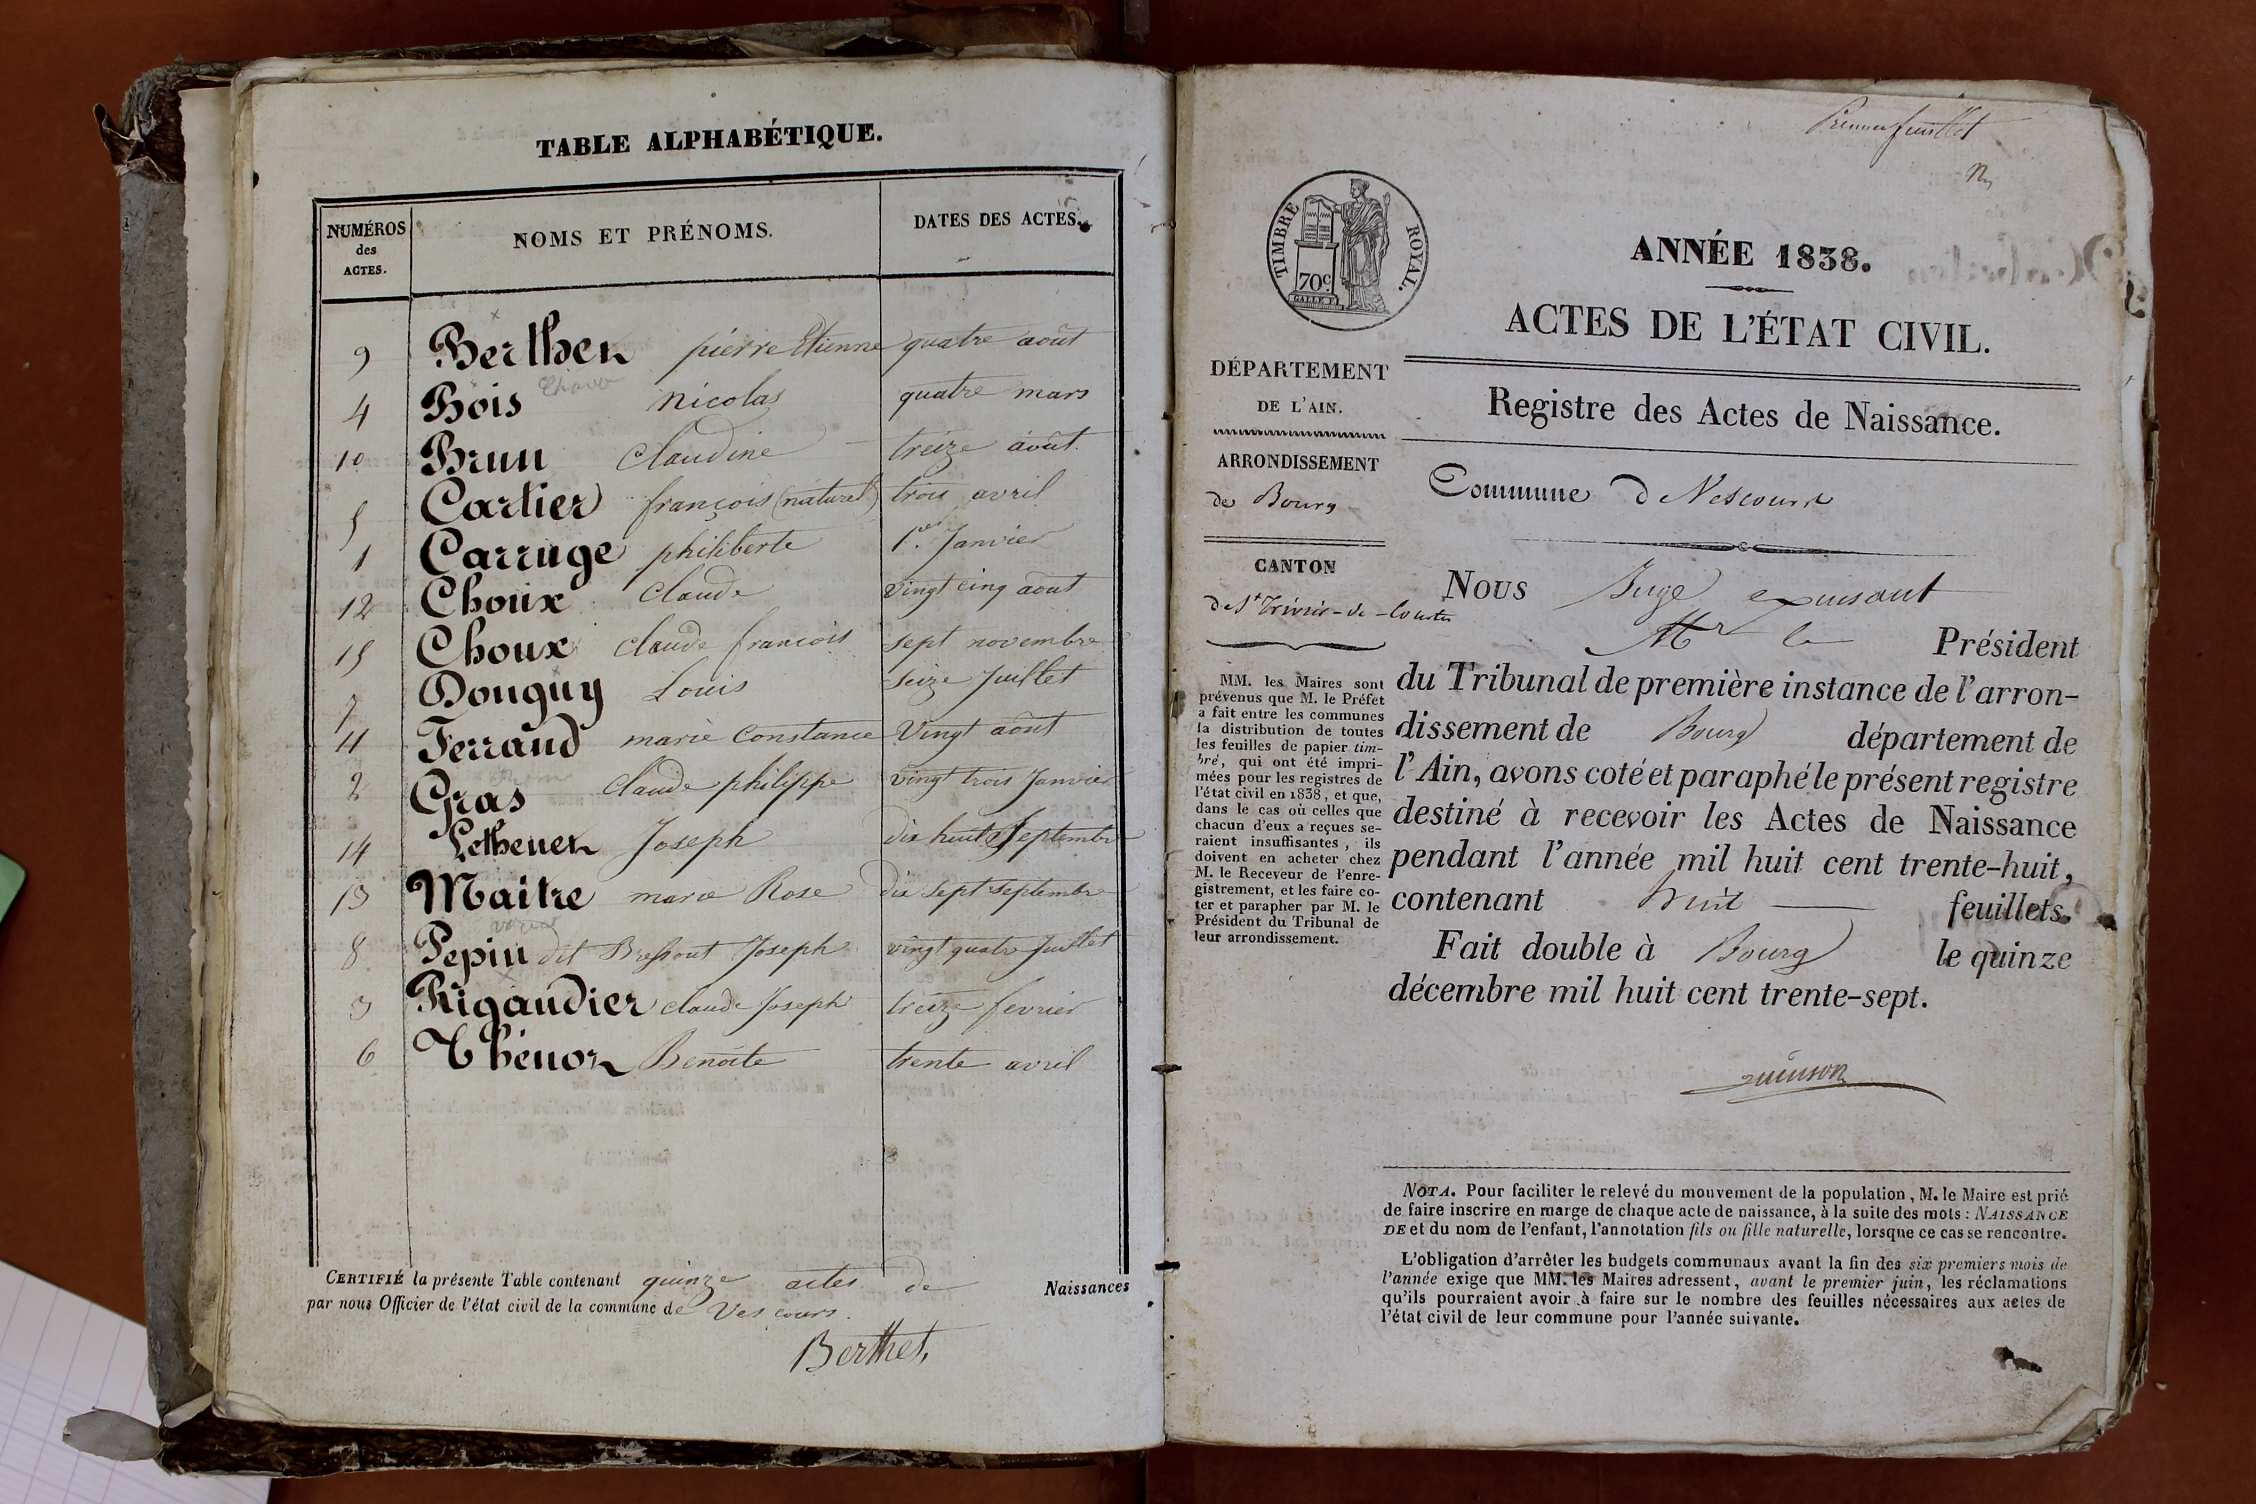 TABLE ALPHABÉTIQUE.
NUMÉROS des ACTES. NOMS ET PRÉNOMS. DATES DES ACTES.
9 Berthen pierre Etienne quatre août
4 Bois nicolas quatre mars
10 Brun claudine treize août
5 Cartier françois (naturel) trois avril
1 Carruge philiberte 1er Janvier
12 Choux Claude vingt cinq août
15 Choux claude françois sept novembre
7 Douguy Louis Seize Juillet
11 Ferraud marie Constance Vingt août
2 Gras Claude philippe vingt trois Janvier
14 Joseph dix huit Septembre
13 Maitre marie Rose dix sept septembre
8 Pepin dit Bressout Joseph vingt quatre Juillet
3 Rigaudier claude Joseph treize fevrier
6 Thénon Benoite trente avril
CERTIFIÉ la présente Table contenant quinze actes de Naissances
par nous Officier de l'état civil de la commune de Vescours.
Berthet,
Premier feuillet
TIMBRE ROYAL.
70c.
ANNÉE 1838.
ACTES DE L'ÉTAT CIVIL.
DÉPARTEMENT
DE L'AIN.
ARRONDISSEMENT
de Bourg
CANTON
de St Trivier-de-Courtes
MM. les Maires sont
prévenus que M. le Préfet
a fait entre les communes
la distribution de toutes
les feuilles de papier tim-
bré, qui ont été impri-
mées pour les registres de
l'état civil en 1838, et que,
dans le cas où celles que
chacun d'eux a reçues se-
raient insuffisantes, ils
doivent en acheter chez
M. le Receveur de l'enre-
gistrement, et les faire co-
ter et parapher par M. le
Président du Tribunal de
leur arrondissement.
Registre des Actes de Naissance.
Commune de Vescours
Nous Juge
Mr le Président
du Tribunal de première instance de l'arron-
dissement de Bourg département de
l'Ain, avons coté et paraphé le présent registre
destiné à recevoir les Actes de Naissance
pendant l'année mil huit cent trente-huit,
contenant huit feuillets.
Fait double à Bourg le quinze
décembre mil huit cent trente-sept.
NOTA. Pour faciliter le relevé du mouvement de la population, M. le Maire est prié
de faire inscrire en marge de chaque acte de naissance, à la suite des mots : NAISSANCE
DE et du nom de l'enfant, l'annotation fils ou fille naturelle, lorsque ce cas se rencontre.
L'obligation d'arrêter les budgets communaux avant la fin des six premiers mois de
l'année exige que MM. les Maires adressent, avant le premier juin, les réclamations
qu'ils pourraient avoir à faire sur le nombre des feuilles nécessaires aux actes de
l'état civil de leur commune pour l'année suivante.